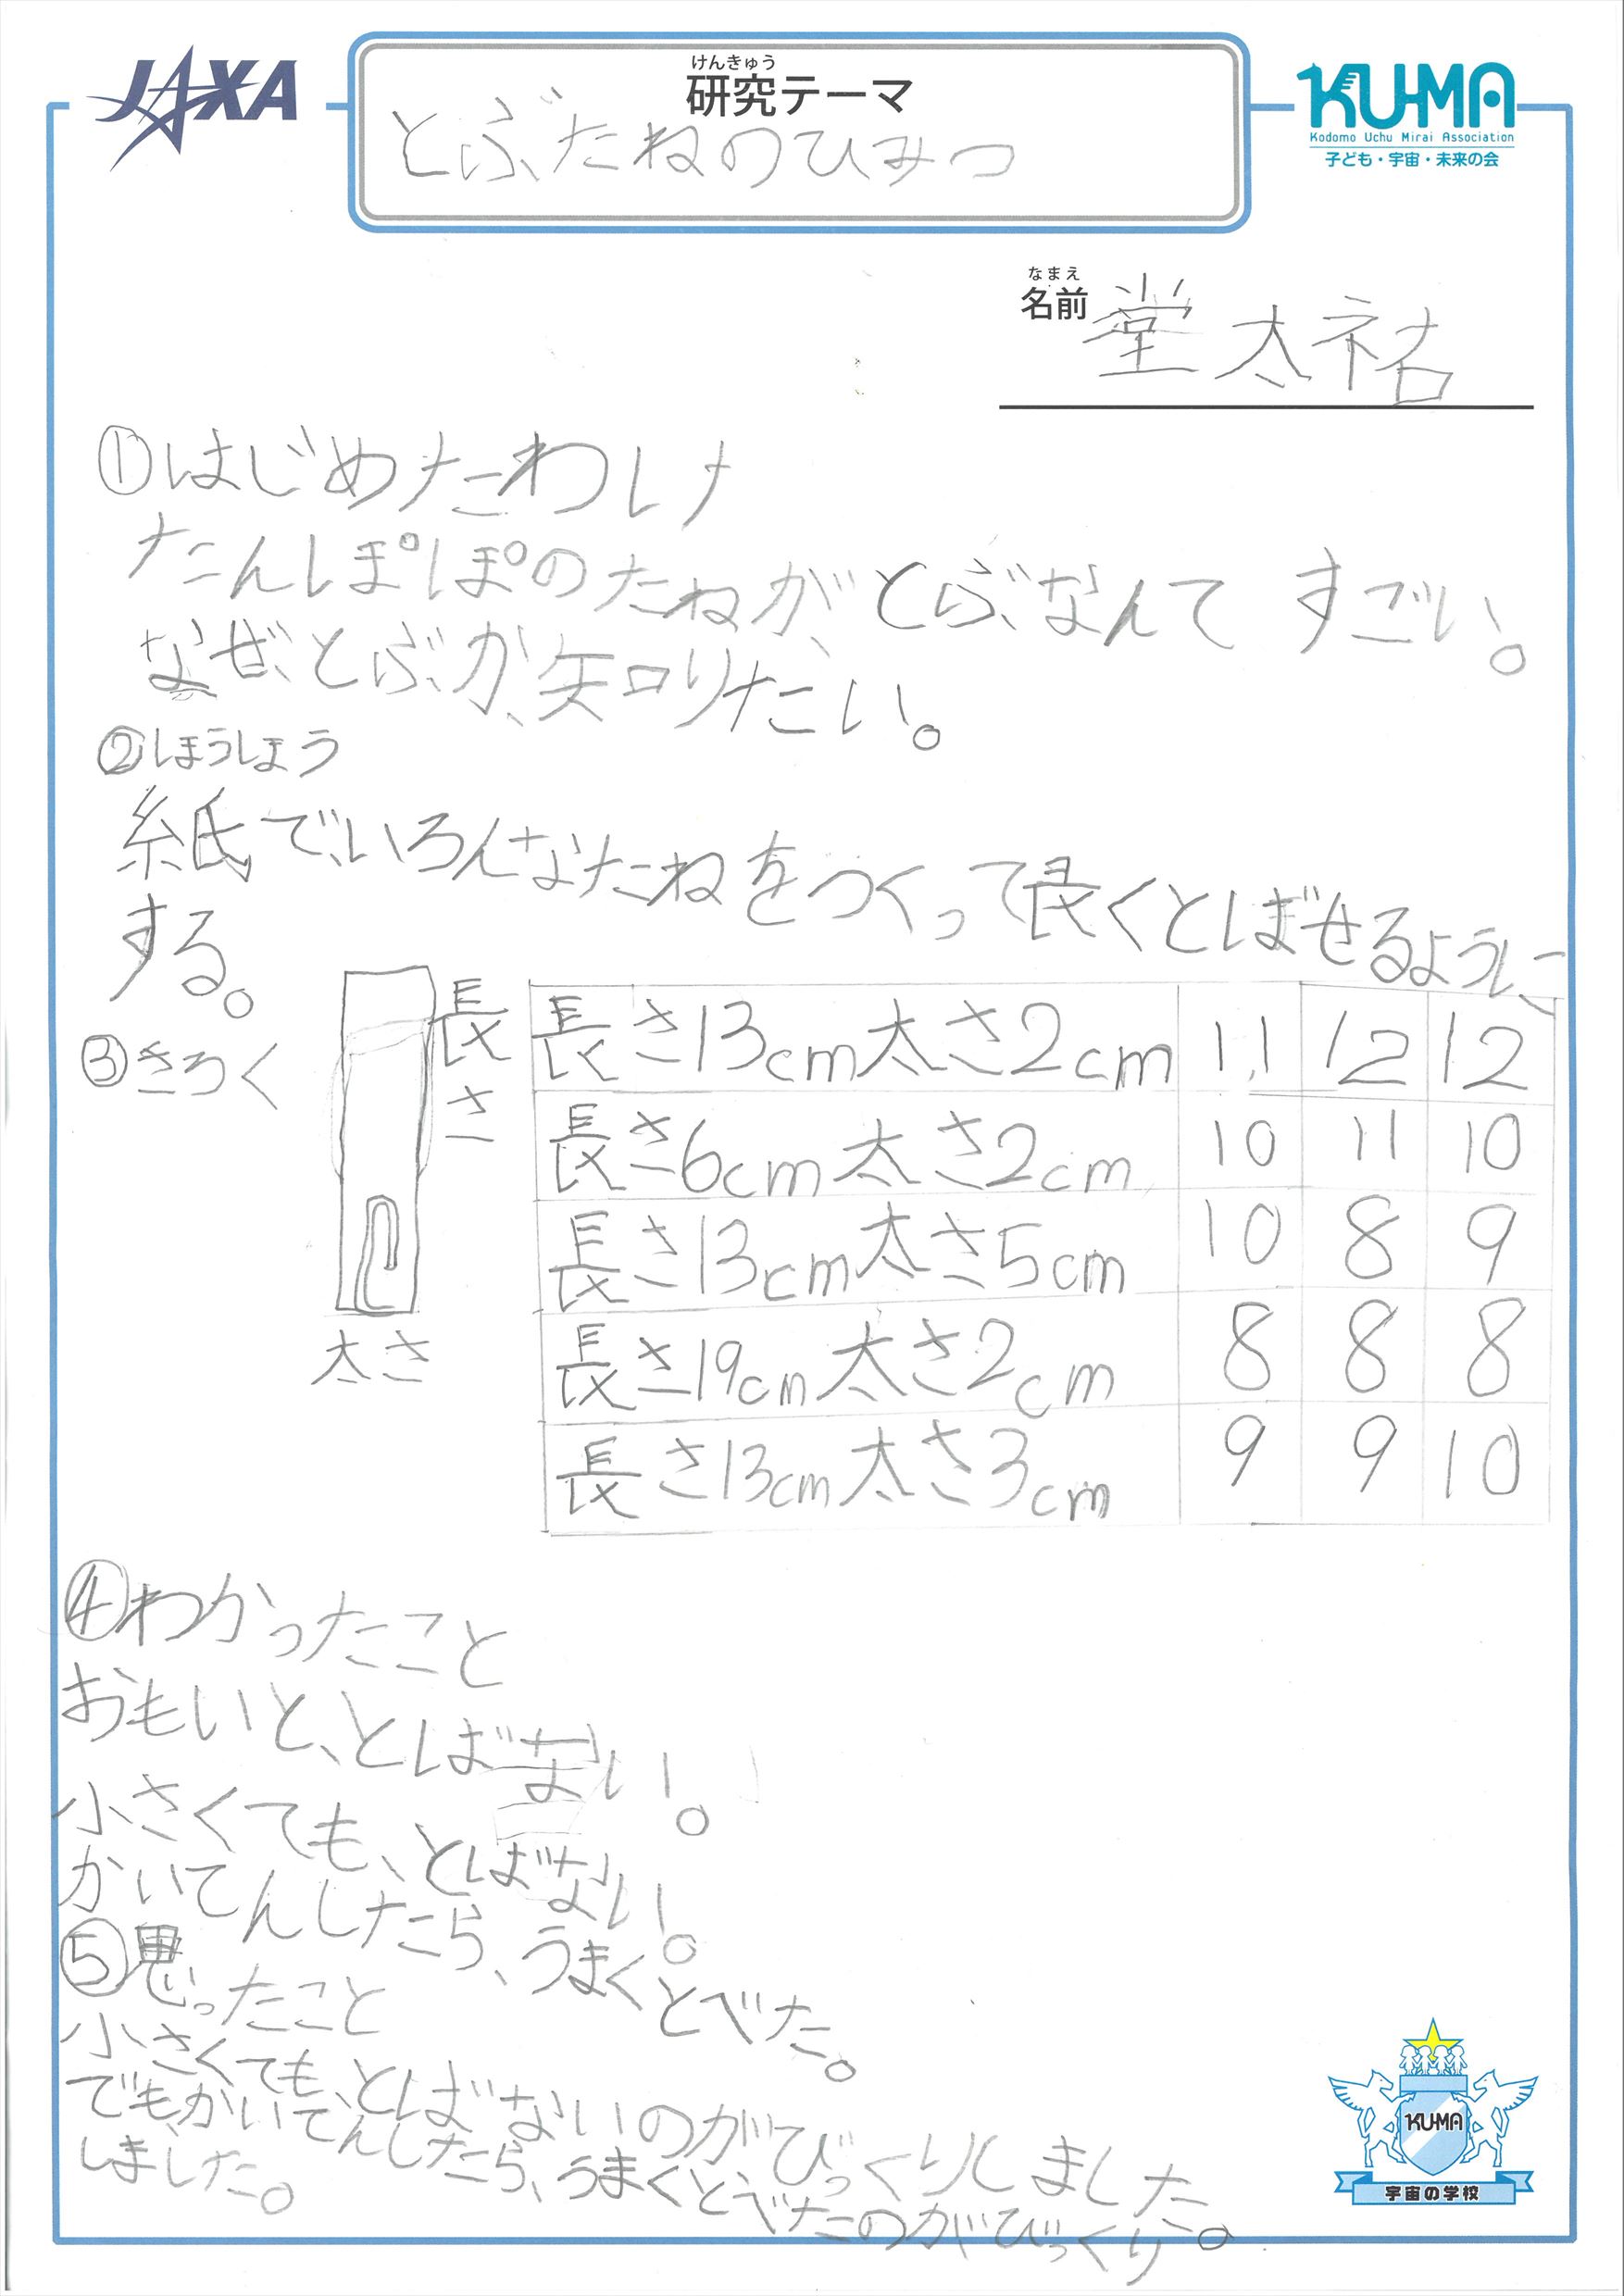 JAXA
けんきゅう
研究テーマ
とぶたねのひみつ
KU-MA
Kodomo Uchu Mirai Association
子ども・宇宙・未来の会
なまえ
名前 堂太祐
①はじめたわけ
たんぽぽのたねが、とぶなんて すごい。
なぜ、とぶか、知りたい。
②ほうほう
紙でいろんなたねをつくって長くとばせるように
する。
③きろく
長さ
太さ
長さ13cm太さ2cm 11 12 12
長さ6cm太さ2cm 10 11 10
長さ13cm太さ5cm 10 8 9
長さ19cm太さ2cm 8 8 8
長さ13cm太さ3cm 9 9 10
④わかったこと
おもいと、とばない。
小さくても、とばない。
かいてんしたら、うまくとべた。
⑤思ったこと
小さくても、とばないのがびっくりしました。
でもかいてんしたら、うまくとべたのがびっくり
しました。
KU-MA
宇宙の学校